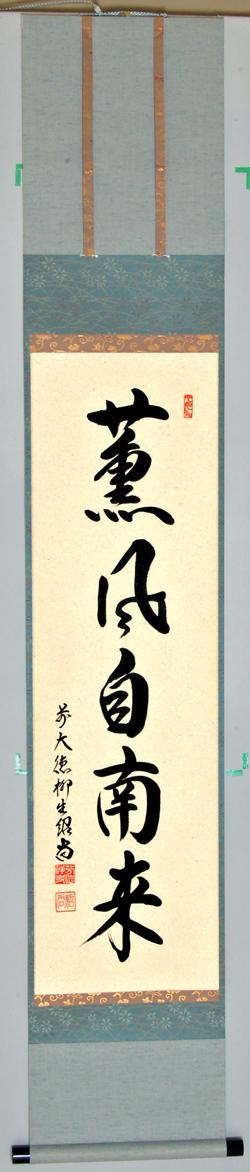 薫風自南来
前大徳柳生紹尚